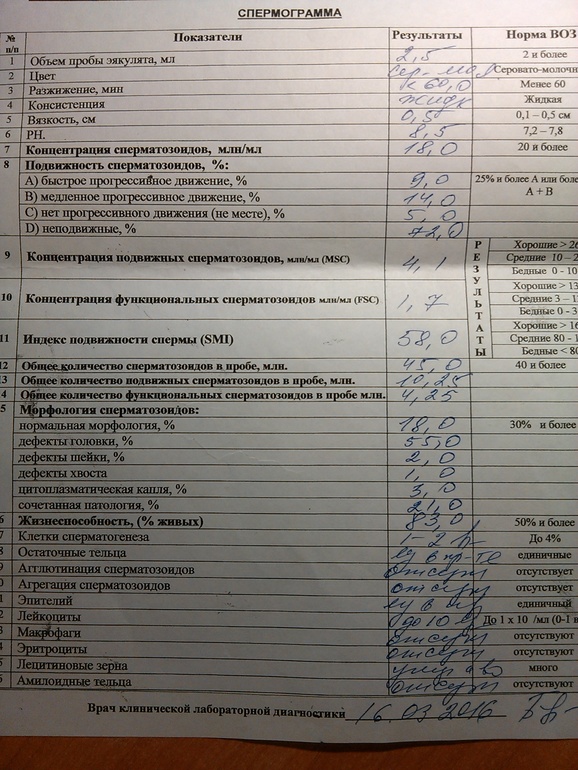 СПЕРМОГРАММА
№ п/п Показатели Результаты Норма ВОЗ
1 Объем пробы эякулята, мл 2,5 2 и более
2 Цвет сер. мол Серовато-молочн
3 Разжижение, мин < 60,0 Менее 60
4 Консистенция жидк Жидкая
5 Вязкость, см 0,5 0,1 – 0,5 см
6 PH. 8,5 7,2 – 7,8
7 Концентрация сперматозоидов, млн/мл 18,0 20 и более
8 Подвижность сперматозоидов, %:
A) быстрое прогрессивное движение, % 9,0 25% и более А или боле
B) медленное прогрессивное движение, % 14,0 А + В
C) нет прогрессивного движения (не месте), % 5,0
D) неподвижные, % 72,0
9 Концентрация подвижных сперматозоидов, млн/мл (MSC) 4,1 Хорошие > 2
Средние 10 – 2
Бедные 0 - 10
10 Концентрация функциональных сперматозоидов млн/мл (FSC) 1,7 Хорошие > 1
Средние 3 – 1
Бедные 0 - 3
11 Индекс подвижности спермы (SMI) 58,0 Хорошие > 16
Средние 80 - 1
Бедные < 80
РЕЗУЛЬТАТЫ
12 Общее количество сперматозоидов в пробе, млн. 45,0 40 и более
13 Общее количество подвижных сперматозоидов в пробе, млн. 10,25
4 Общее количество функциональных сперматозоидов в пробе млн. 4,25
5 Морфология сперматозоидов:
нормальная морфология, % 18,0 30% и более
дефекты головки, % 55,0
дефекты шейки, % 2,0
дефекты хвоста 1,0
цитоплазматическая капля, % 3,0
сочетанная патология, % 21,0
6 Жизнеспособность, (% живых) 83,0 50% и более
7 Клетки сперматогенеза 1-2 До 4%
8 Остаточные тельца ед в пр-те единичные
9 Агглютинация сперматозоидов отсутств отсутствует
0 Агрегация сперматозоидов отсутств отсутствует
1 Эпителий ед в единичный
2 Лейкоциты до 10 До 1 x 10 /мл (0-1 в
3 Макрофаги отсутств отсутствуют
4 Эритроциты отсутств отсутствуют
5 Лецитиновые зерна много
6 Амилоидные тельца отсутств отсутствуют
Врач клинической лабораторной диагностики 16.03 2016